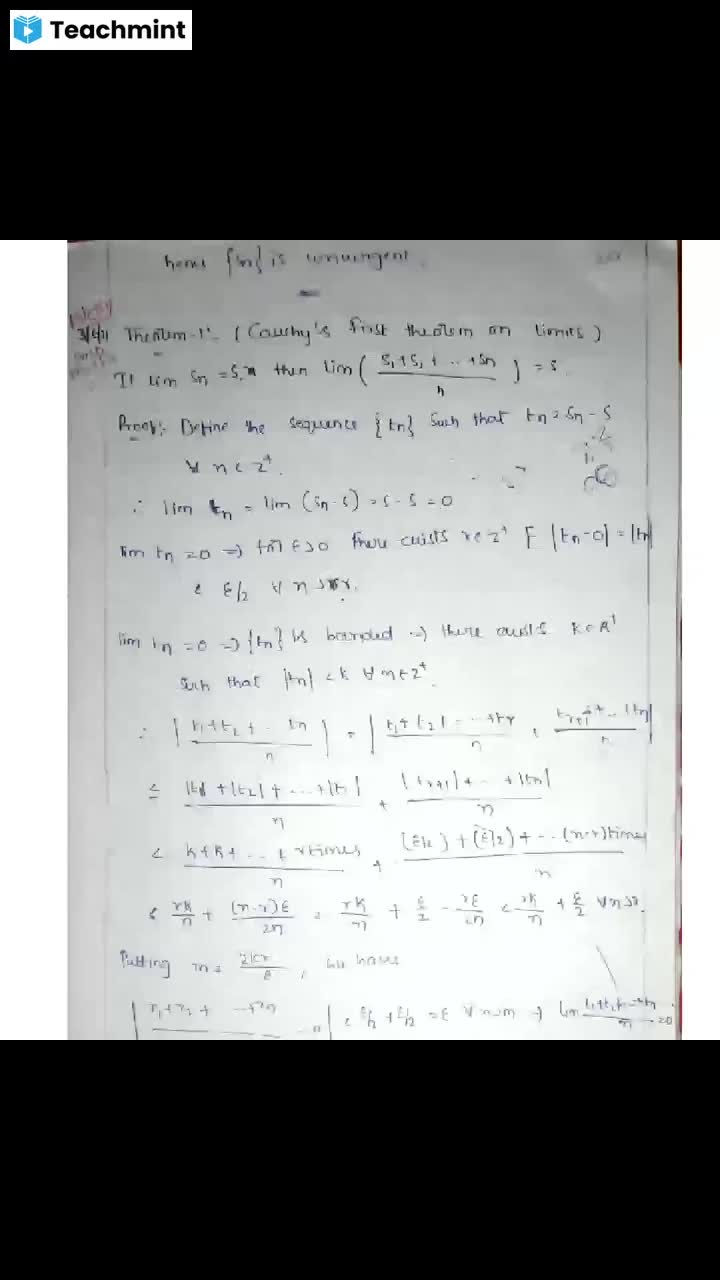 Teachmint
hence {sn} is convergent.
3/6/11 Theorem-1:- (Cauchy's first theorem on limits)
If lim sn = s, then lim ( (s1 + s2 + ... + sn) / n ) = s.
Proof:- Define the sequence {tn} such that tn = sn - s
∀ n ∈ z⁺.
∴ lim tn = lim (sn - s) = s - s = 0
lim tn = 0 ⇒ for ε > 0 there exists r ∈ z⁺ ∋ |tn - 0| = |tn|
< ε/2 ∀ n > r.
lim tn = 0 ⇒ {tn} is bounded ⇒ there exists k ∈ R⁺
such that |tn| < k ∀ n ∈ z⁺.
∴ | (t1 + t2 + ... tn) / n | = | (t1 + t2 + ... + tr) / n + (tr+1 + ... tn) / n |
≤ (|t1| + |t2| + ... + |tr|) / n + (|tr+1| + ... + |tn|) / n
< (k + k + ... + r times) / n + ((ε/2) + (ε/2) + ... (n-r) times) / n
< rk/n + (n-r)ε/2n = rk/n + ε/2 - rε/2n < rk/n + ε/2 ∀ n > r.
Putting m = 2kr/ε, we have
| (t1 + t2 + ... + tn) / n | < ε/2 + ε/2 = ε ∀ n > m ⇒ lim (t1 + t2 + ... + tn) / n = 0